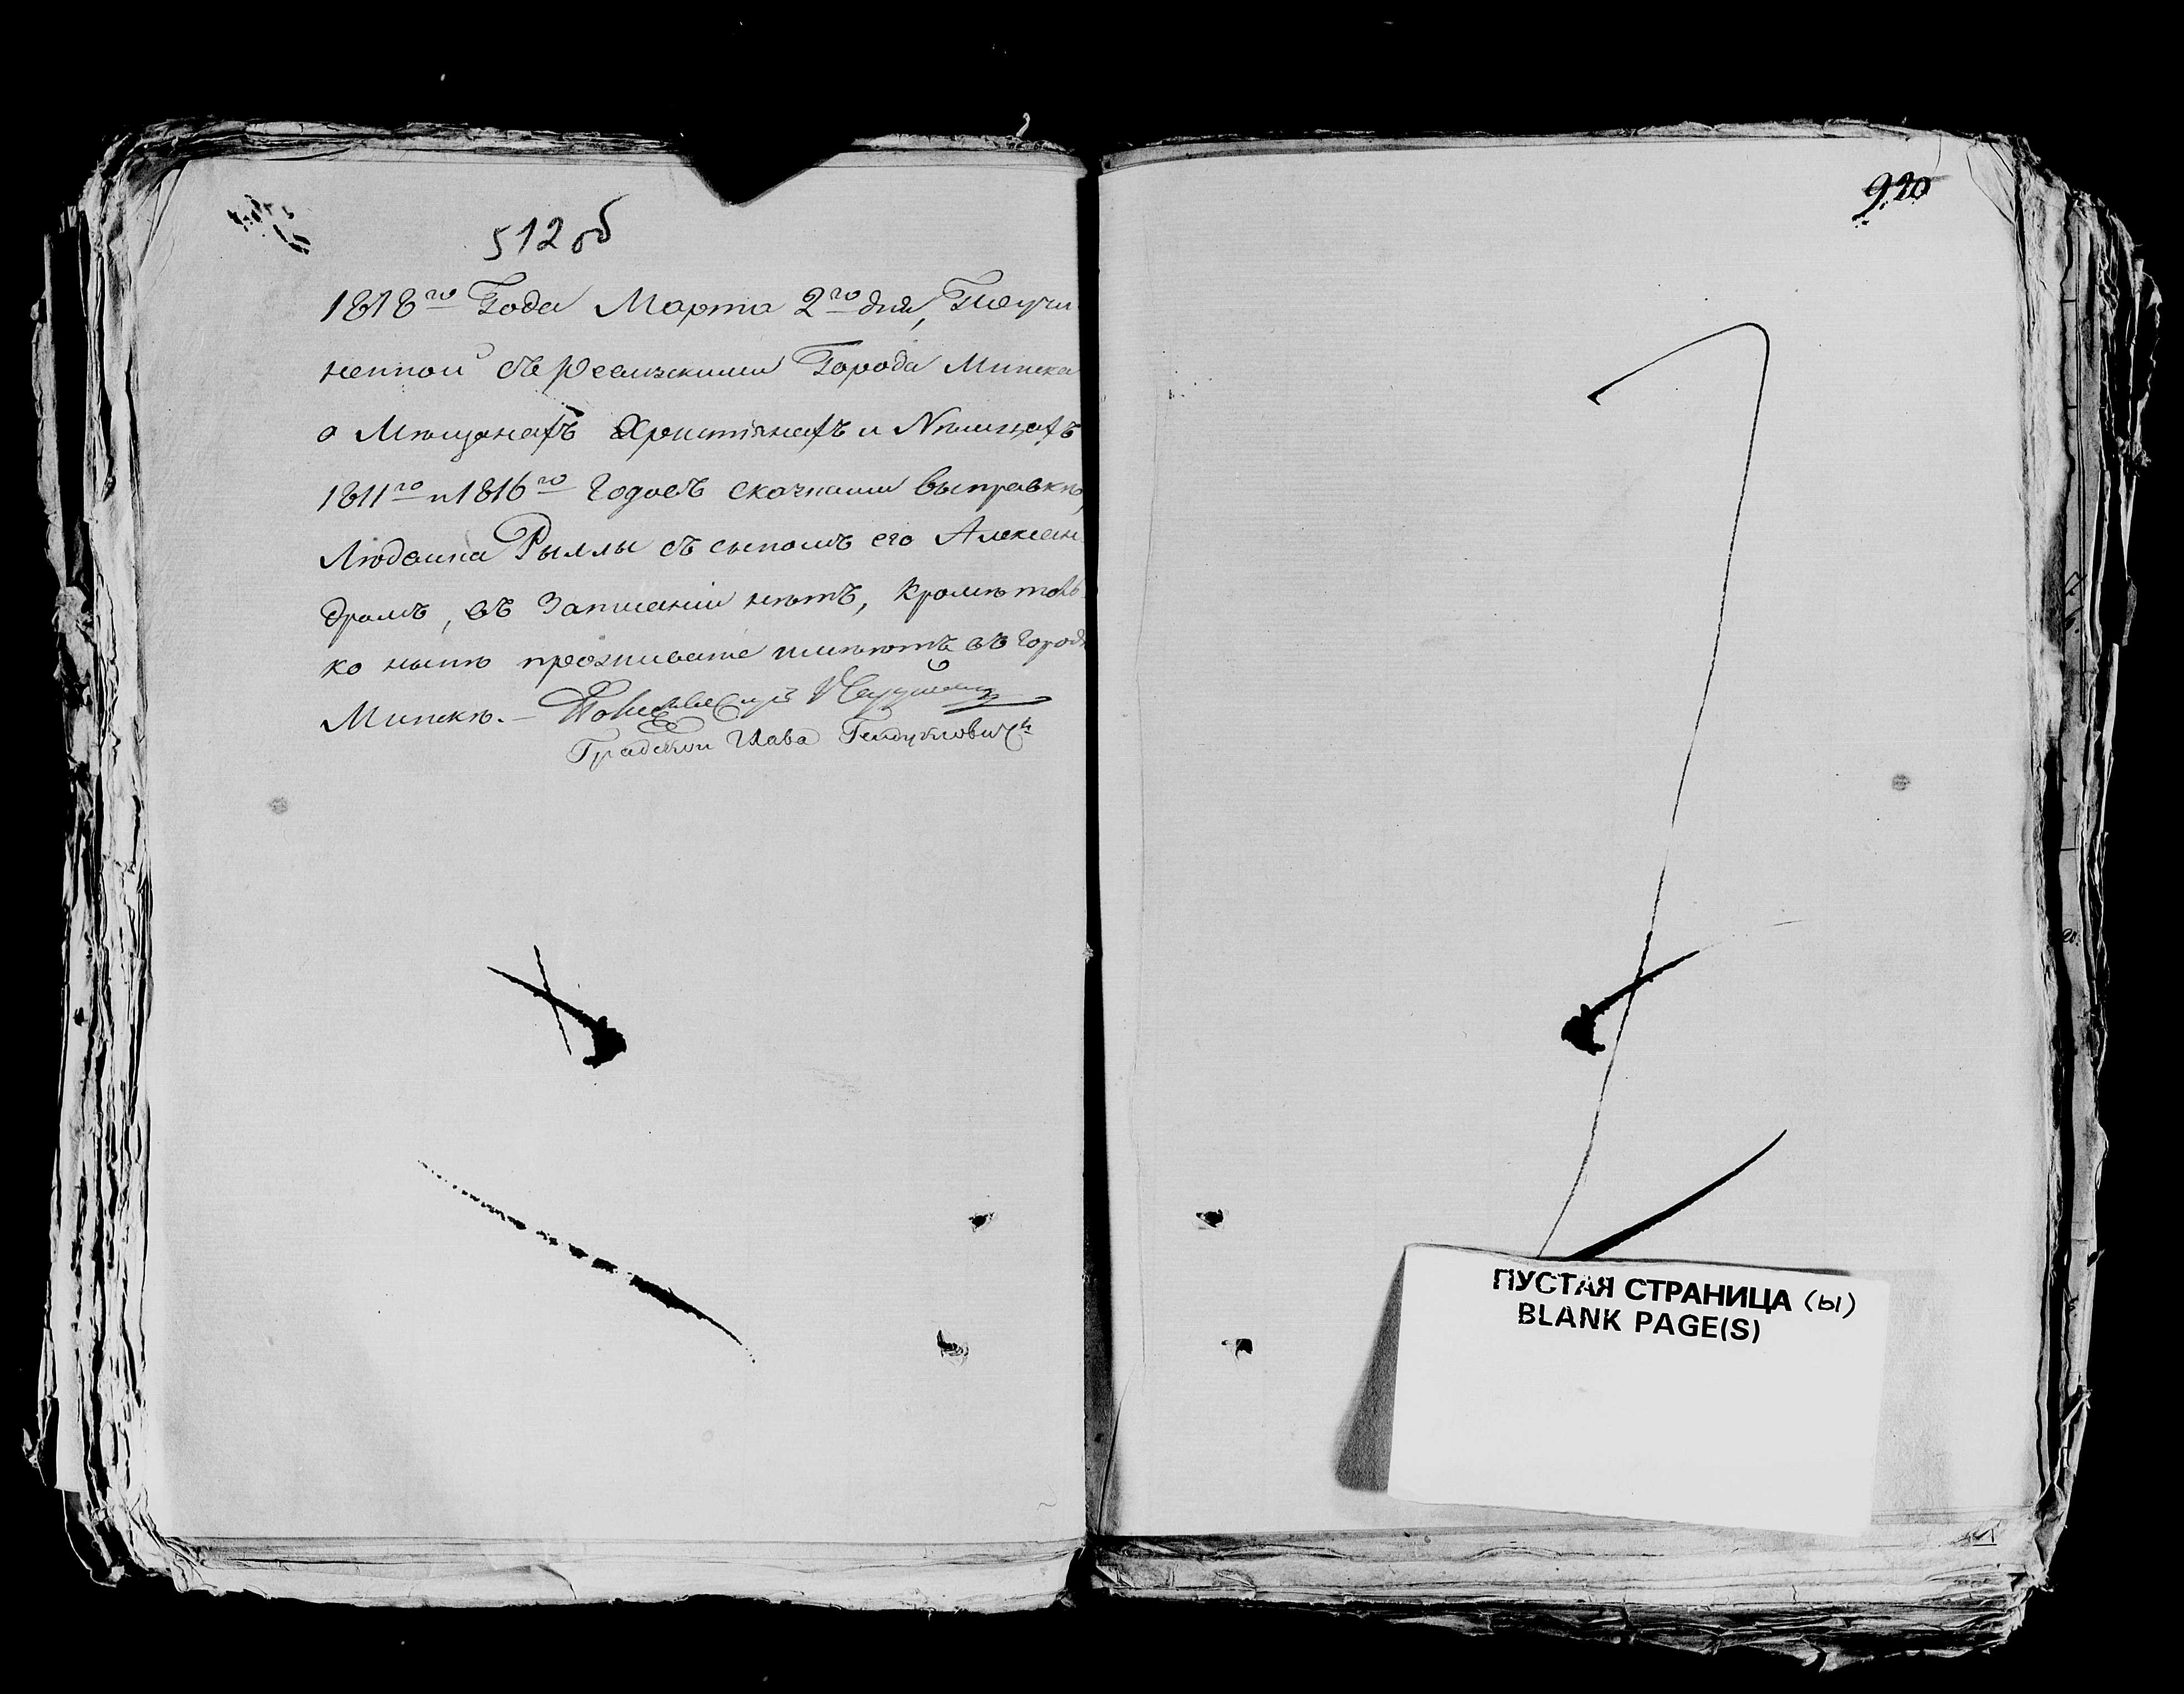 512 об
1818го Года Марта 2го дня, По учи
ненной съ Ревизскими Города Минска
о Мѣщанахъ Христiянахъ и Нѣмцахъ
1811го и 1816го Годовъ скасками выправкѣ,
Людвика Рыллы съ сыномъ его Алексан
дромъ, въ Записанiи нѣтъ, кромѣ толь
ко нынѣ прозживание имѣютъ въ Городѣ
Минскѣ. –
Градской Глава
920
ПУСТАЯ СТРАНИЦА (ы)
BLANK PAGE(S)